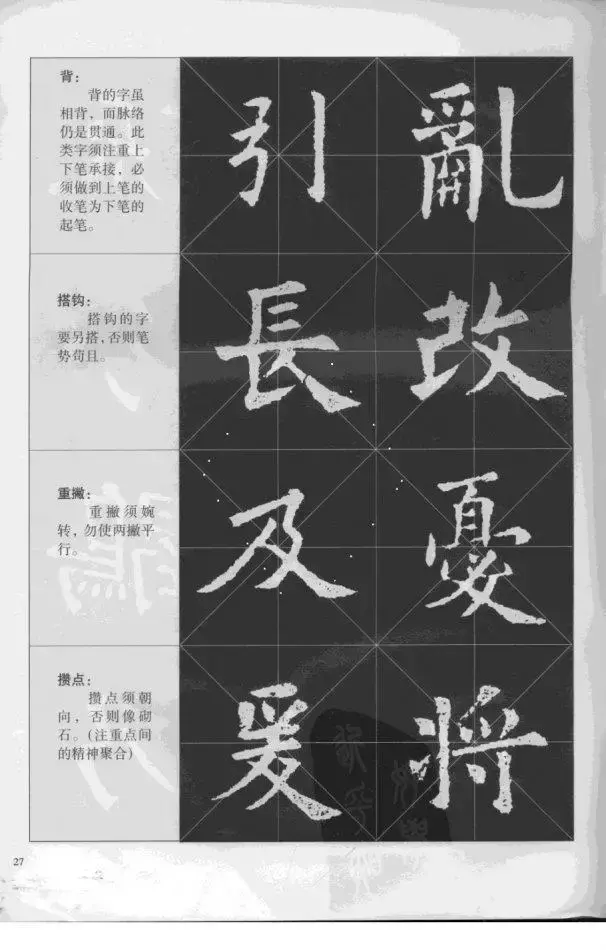 背：
背的字虽
相背，而脉络
仍是贯通。此
类字须注重上
下笔承接，必
须做到上笔的
收笔为下笔的
起笔。
引 亂
搭钩：
搭钩的字
要另搭，否则笔
势苟且。
長 改
重撇：
重撇须婉
转，勿使两撇平
行。
及 憂
攒点：
攒点须朝
向，否则像砌
石。(注重点间
的精神聚合)
爰 将
27